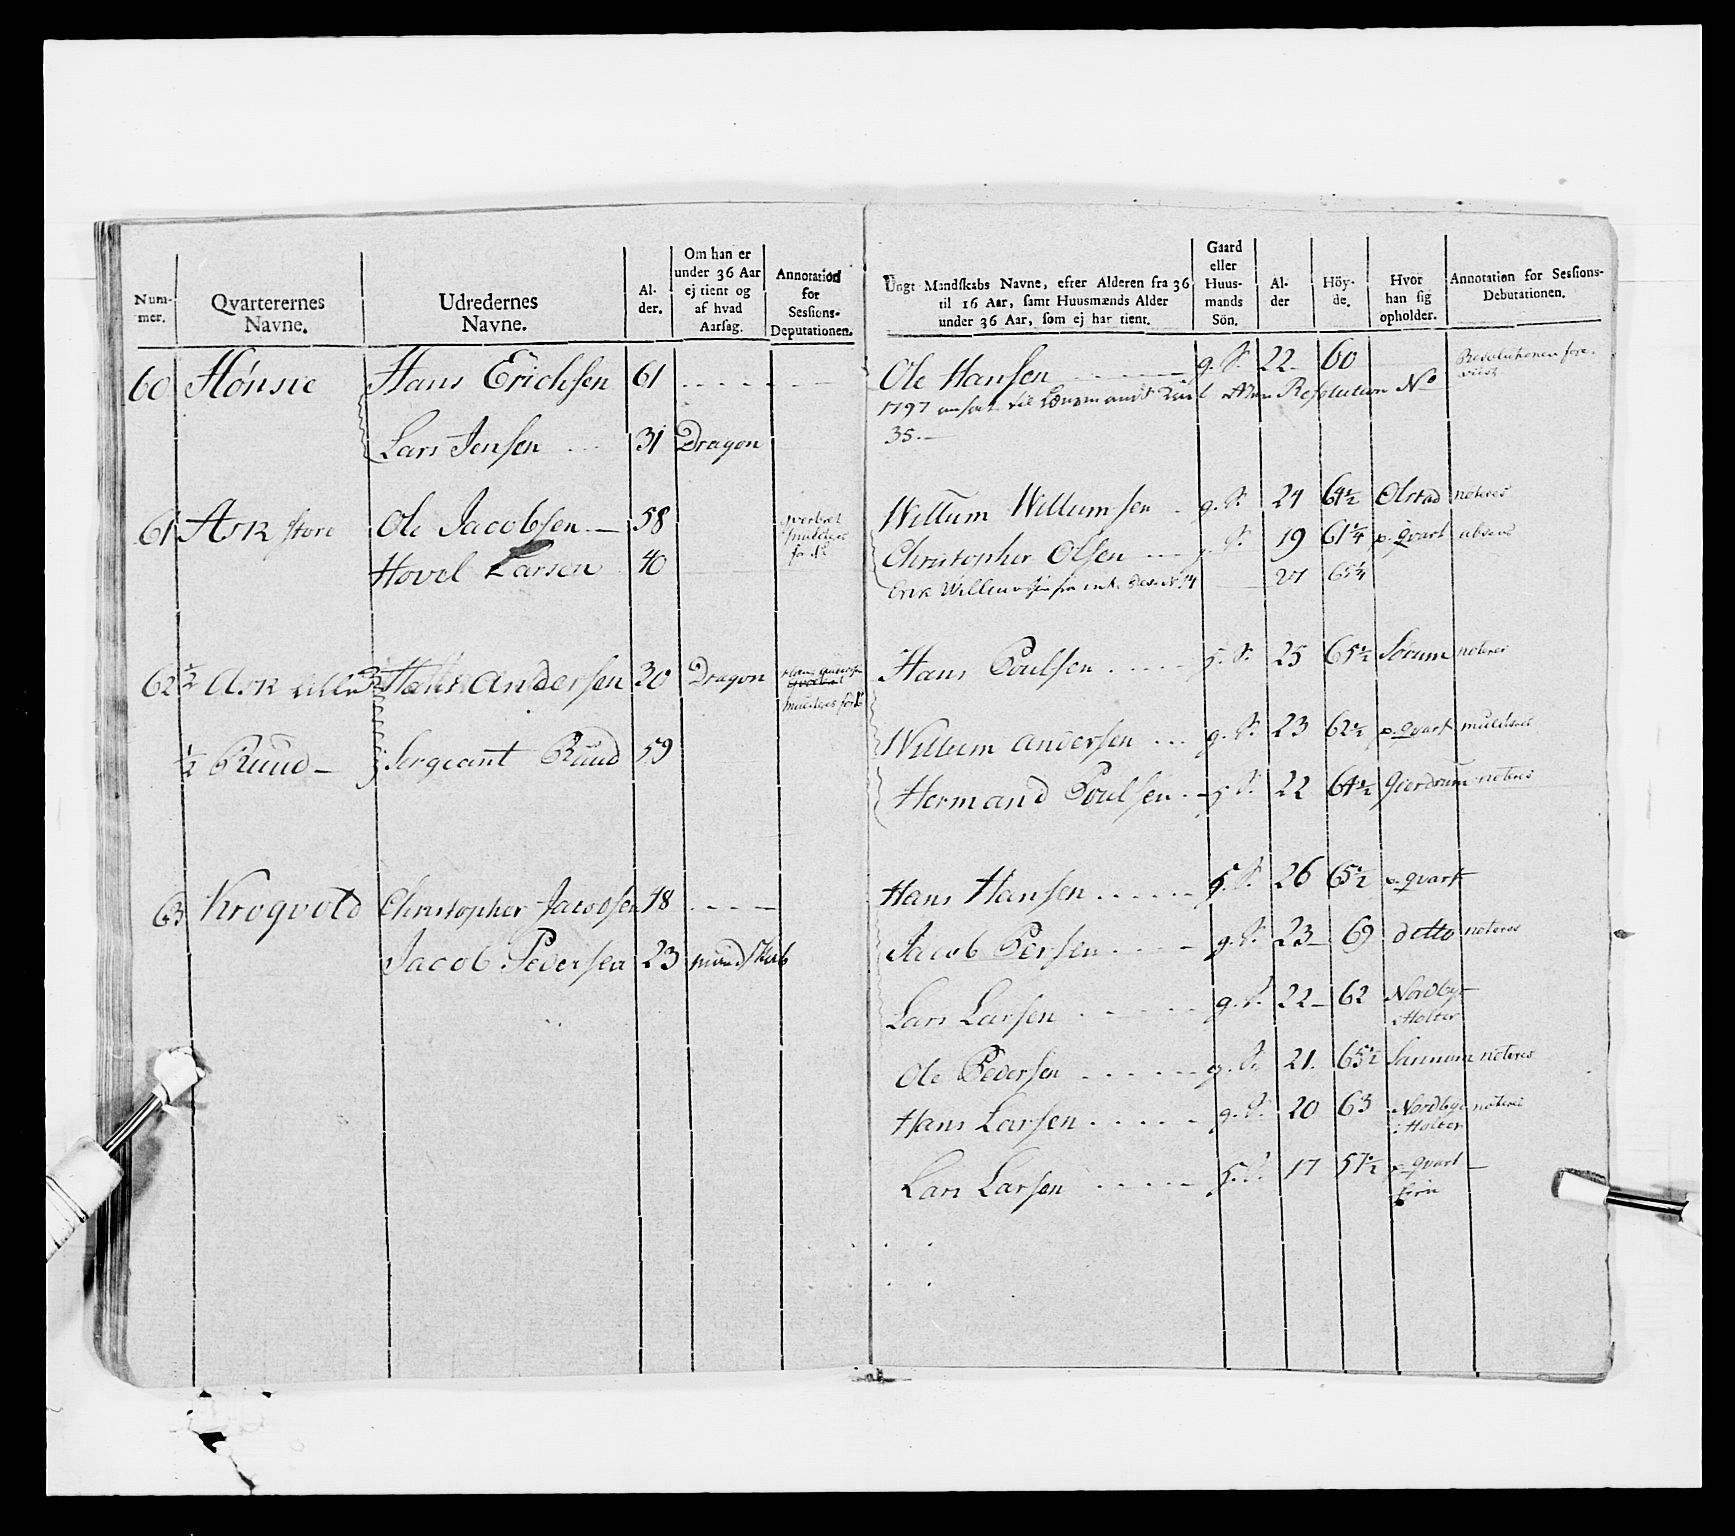 Num-
mer.
Qvarterernes
Navne.
Udredernes
Navne.
Al-
der.
Om han er
under 36 Aar
ej tient og
af hvad
Aarsag.
Annotation
for
Sessions-
Deputationen.
60 Hönsie Hans Erichsen 61
Lars Jensen 31 Dragon
61 Ask store Ole Jacobsen 58
Hovel Larsen 40
62 ½ Ask lille Hans Andersen 30 Dragon
½ Ruud Sergeant Ruud 59
63 Krogvold Christopher Jacobsen 48
Jacob Pedersen 23 mandskab
Ungt Mandskabs Navne, efter Alderen fra 36
til 16 Aar, samt Huusmænds Alder
under 36 Aar, som ej har tient.
Gaard
eller
Huus-
mands
Sön.
Al-
der
Höy-
de.
Hvor
han sig
opholder.
Annotation for Sessions-
Debutationen.
Ole Hansen g. S. 22 60 Resolutionen fore-
viist
1797 ansat til Resolution No
35.
Willum Willumsen g. S. 24 64½ Olstad noteres
Christopher Olsen g. S. 19 61¼ p. qvart absens
Erik 27 65¼
Hans Poulsen g. S. 25 65½ Sörum noteres
Willum Andersen g. S. 23 62½ p. qvart
Hermand Poulsen g. S. 22 64½ Gierdrum noteres
Hans Hansen g. S. 26 65½ p. qvart
Jacob Persen g. S. 23 69 detto noteres
Lars Larsen g. S. 22 62 Nordbye
i Holter
Ole Pedersen g. S. 21 65½ noteres
Hans Larsen g. S. 20 63 Nordbye noteres
i Holter
Lars Larsen g. S. 17 57½ p. qvart